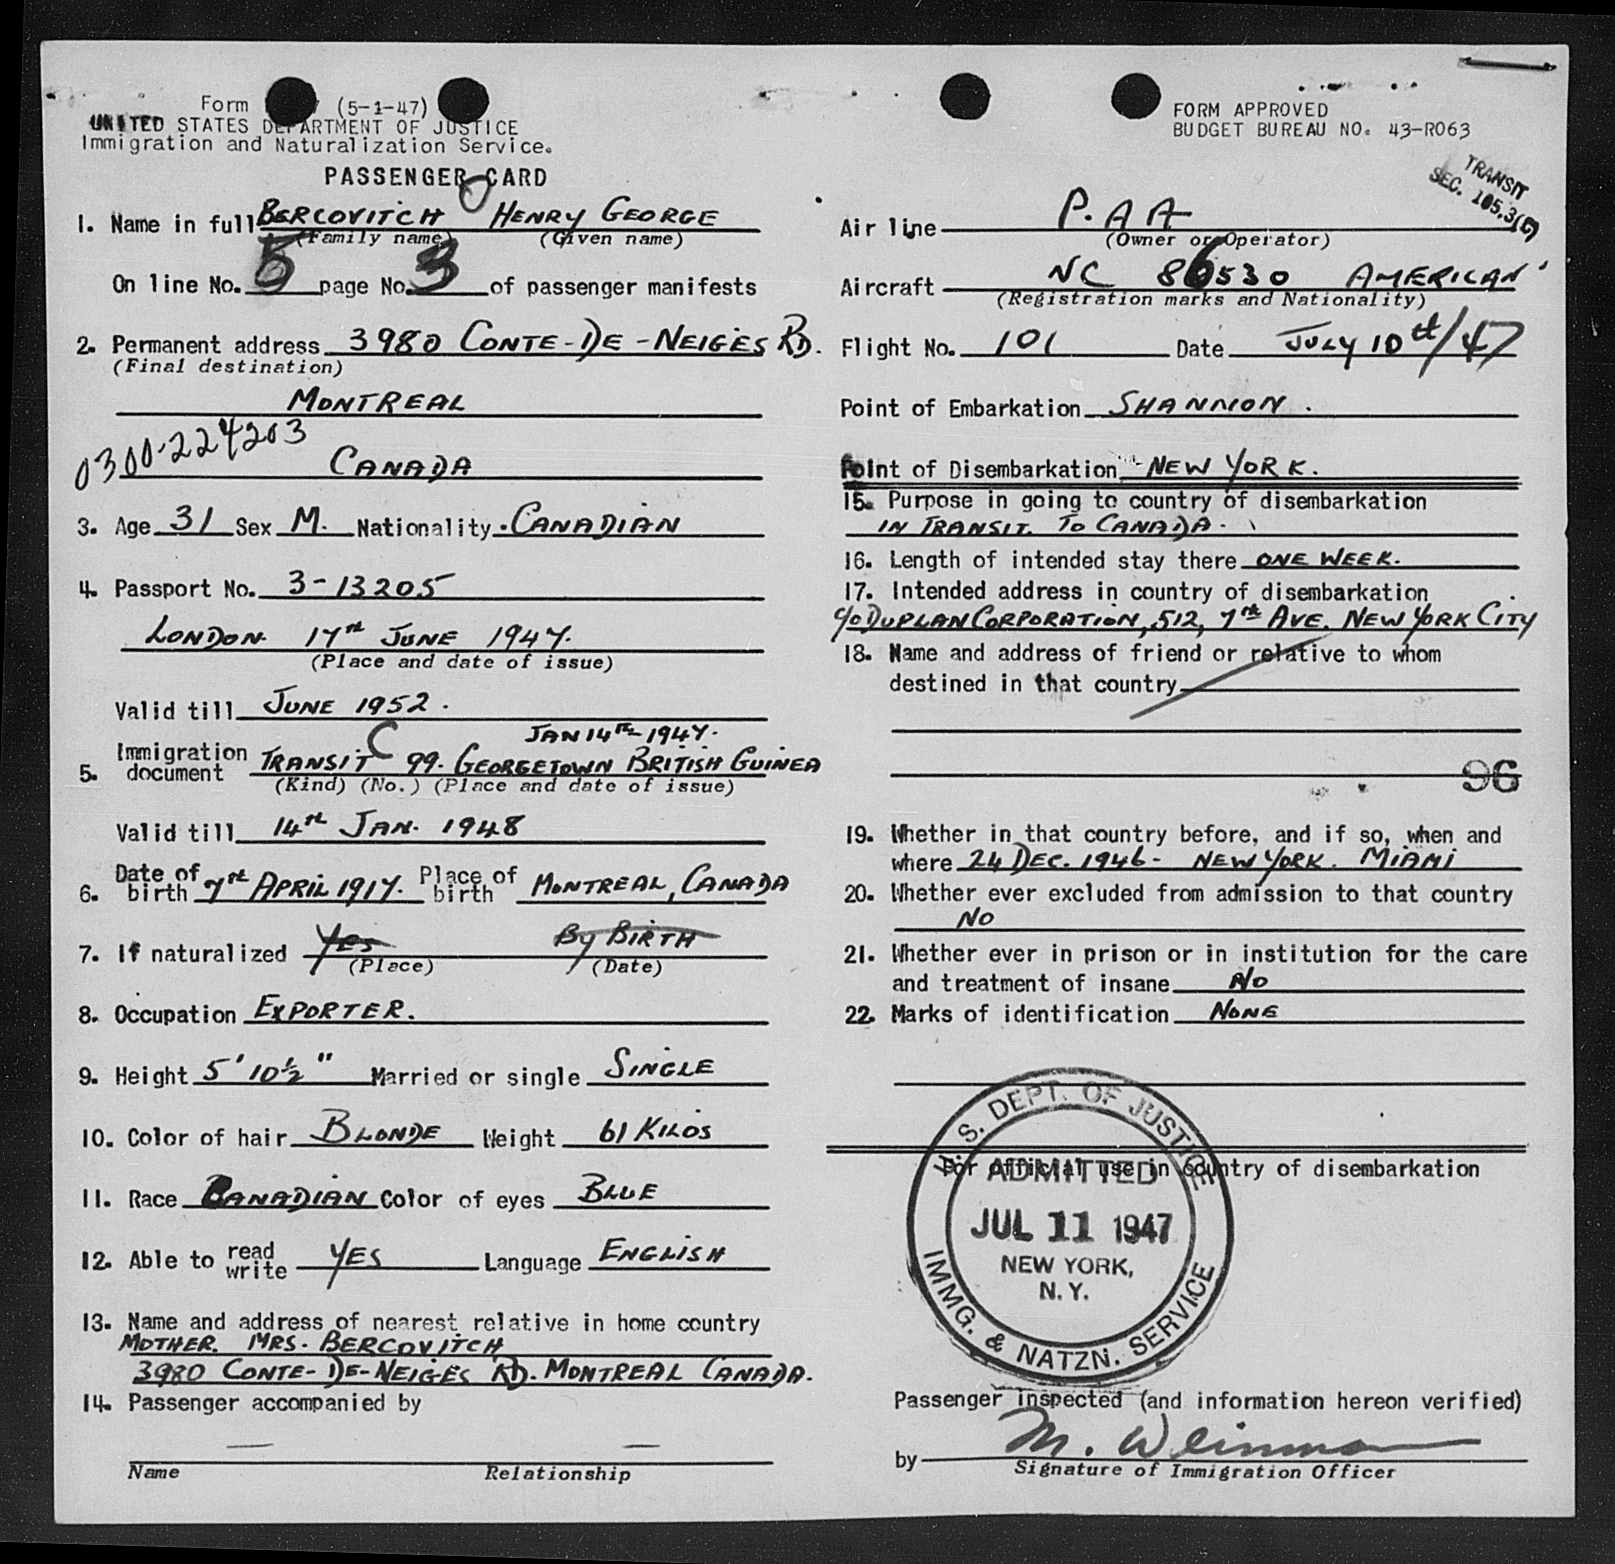 Form (5-1-47)
UNITED STATES DEPARTMENT OF JUSTICE
Immigration and Naturalization Service.
PASSENGER CARD
1. Name in full BERCOVITCH HENRY GEORGE
(Family name) (Given name)
On line No. 5 page No. 3 of passenger manifests
2. Permanent address 3980 CONTE-DE-NEIGES RD.
(Final destination)
MONTREAL
0300-224203
CANADA
3. Age 31 Sex M. Nationality CANADIAN
4. Passport No. 3-13205
LONDON. 17th JUNE 1947.
(Place and date of issue)
Valid till JUNE 1952.
C JAN 14TH-1947.
5. Immigration document TRANSIT 99. GEORGETOWN BRITISH GUINEA
(Kind) (No.) (Place and date of issue)
Valid till 14th JAN. 1948
6. Date of birth 7th APRIL 1917. Place of birth MONTREAL, CANADA
7. If naturalized YES BY BIRTH
(Place) (Date)
8. Occupation EXPORTER.
9. Height 5' 10½" Married or single SINGLE
10. Color of hair BLONDE Weight 61 KILOS
11. Race CANADIAN Color of eyes BLUE
12. Able to read write YES Language ENGLISH
13. Name and address of nearest relative in home country
MOTHER. MRS. BERCOVITCH
3980 CONTE-DE-NEIGES RD. MONTREAL CANADA.
14. Passenger accompanied by
Name Relationship
FORM APPROVED
BUDGET BUREAU NO. 43-R063
TRANSIT
SEC. 105.3(
Air line P.A A
(Owner or Operator)
Aircraft NC 86530 AMERICAN
(Registration marks and Nationality)
Flight No. 101 Date JULY 10th/47
Point of Embarkation SHANNON.
Point of Disembarkation NEW YORK.
15. Purpose in going to country of disembarkation
IN TRANSIT. TO CANADA.
16. Length of intended stay there ONE WEEK.
17. Intended address in country of disembarkation
c/o DUPLAN CORPORATION, 512, 7th AVE. NEW YORK CITY
18. Name and address of friend or relative to whom
destined in that country
96
19. Whether in that country before, and if so, when and
where 24 DEC. 1946 - NEW YORK. MIAMI
20. Whether ever excluded from admission to that country
NO
21. Whether ever in prison or in institution for the care
and treatment of insane NO
22. Marks of identification NONE
For official use in country of disembarkation
U.S. DEPT. OF JUSTICE
ADMITTED
JUL 11 1947
NEW YORK,
N.Y.
IMMG. & NATZN. SERVICE
Passenger inspected (and information hereon verified)
by M. Weinman
Signature of Immigration Officer